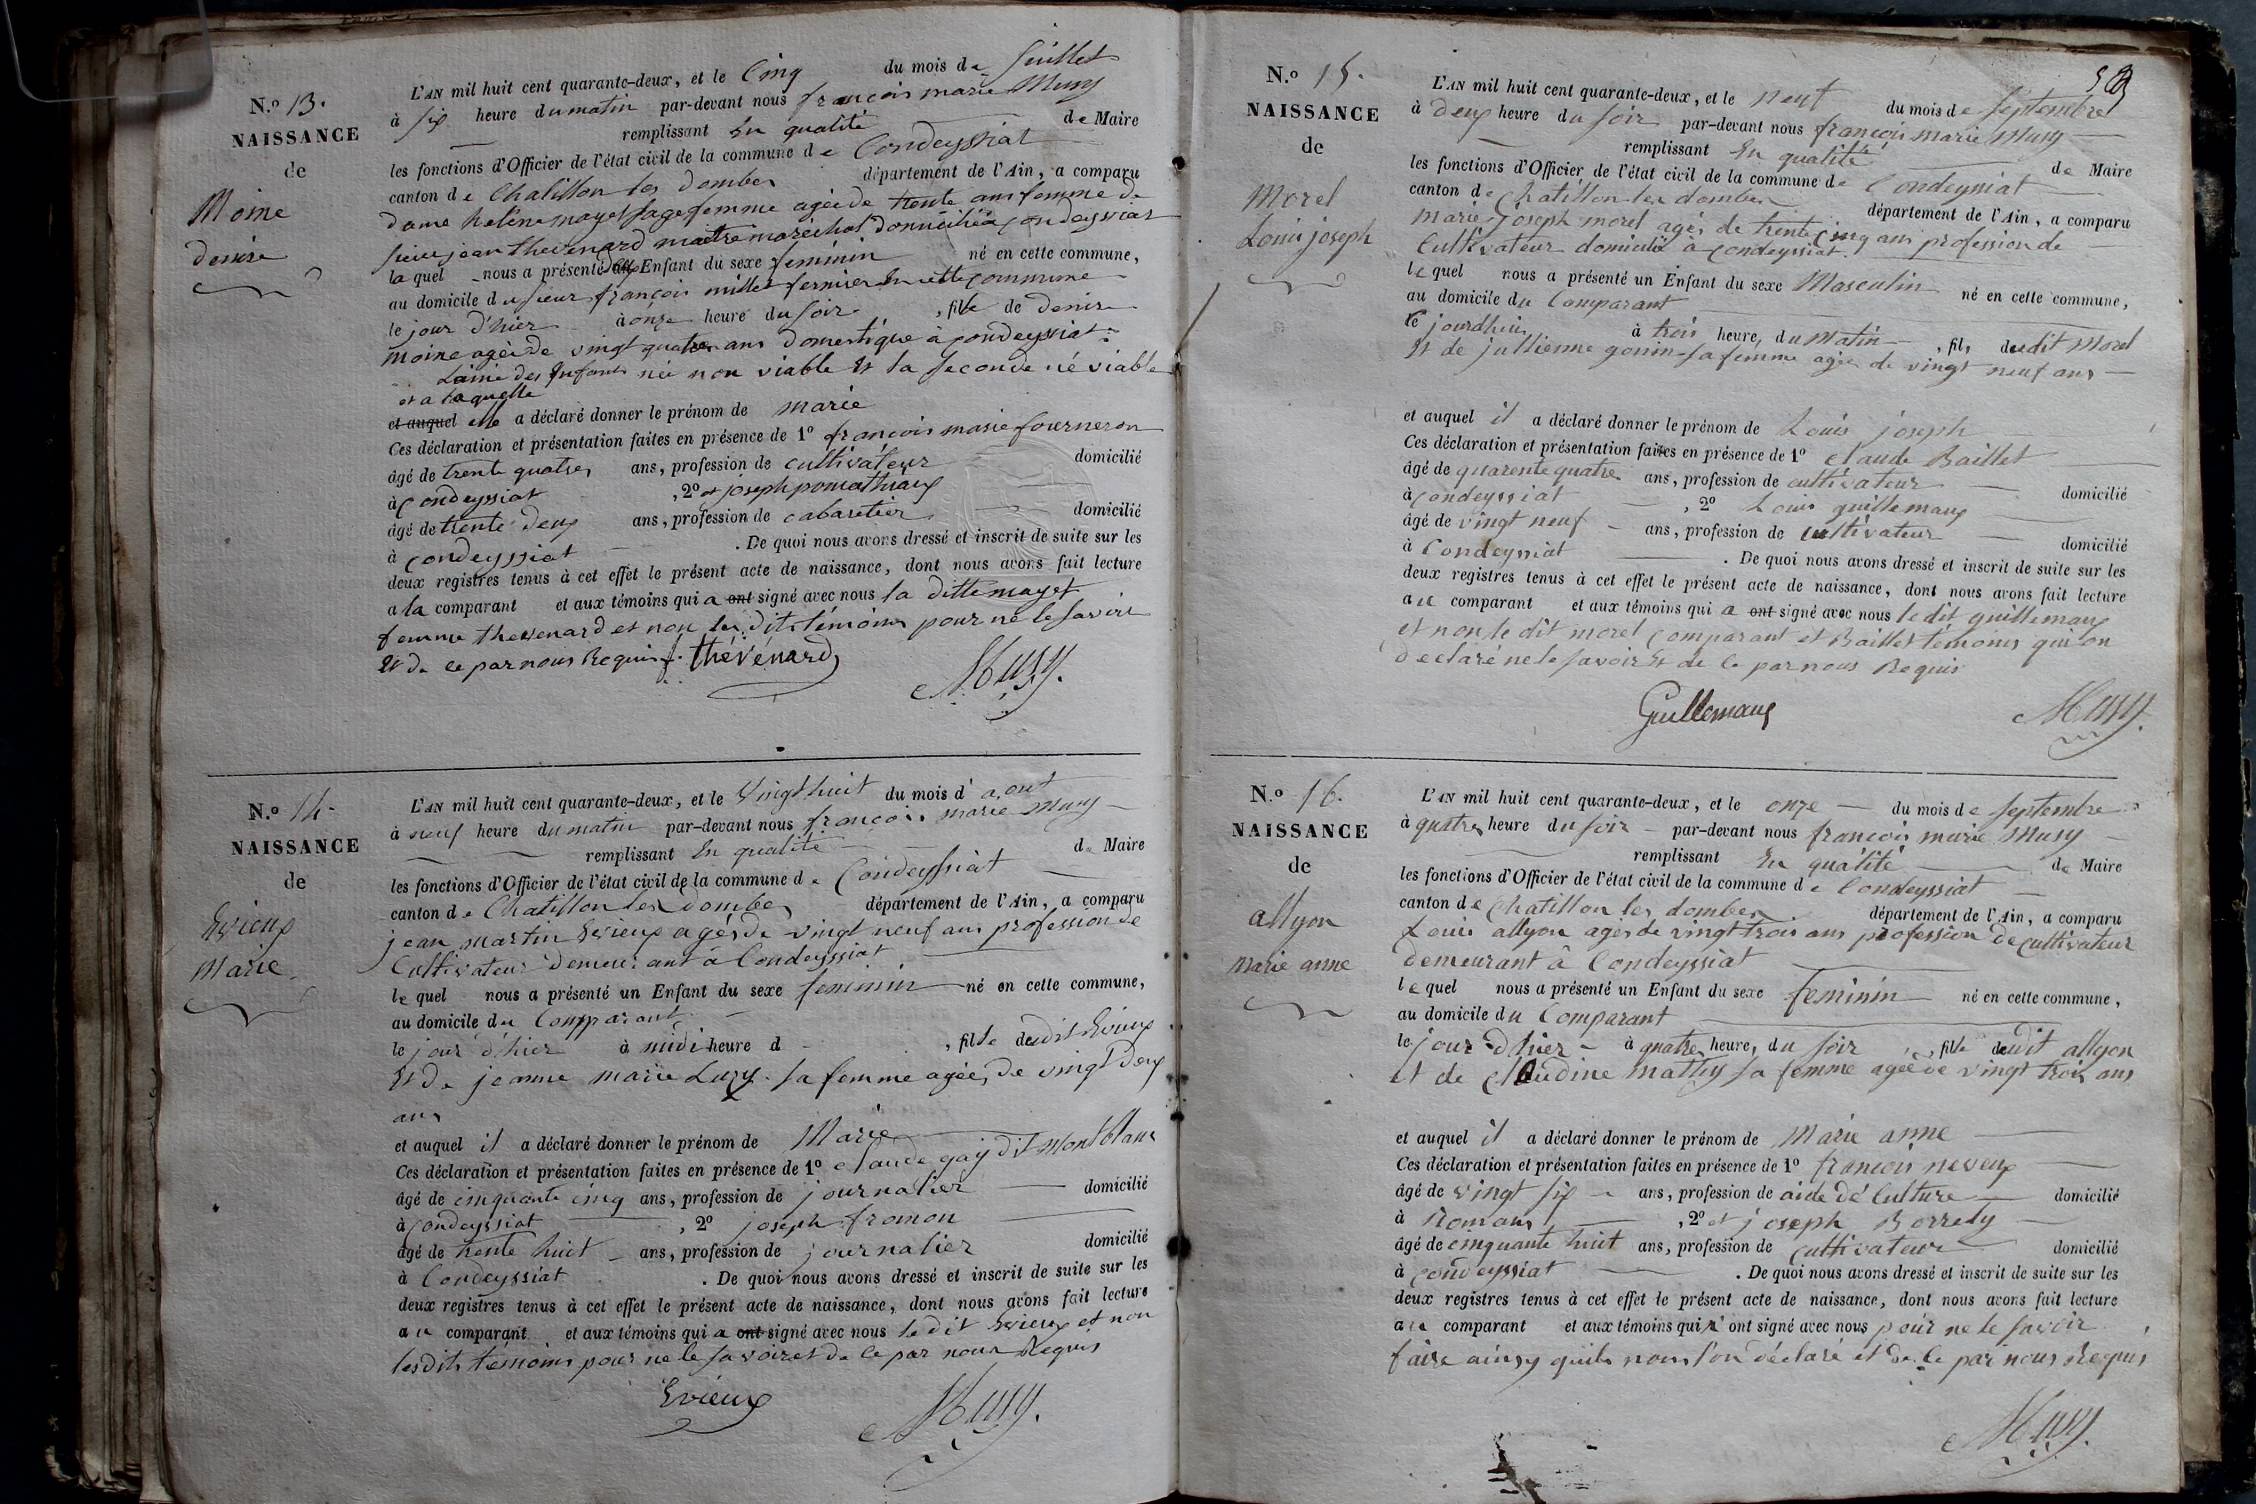 N.º 13.
NAISSANCE
de
Moine
denise
L'AN mil huit cent quarante-deux, et le Cinq du mois de Juillet
à six heure du matin par-devant nous françois marie Musy
remplissant En qualité de Maire
les fonctions d'Officier de l'état civil de la commune de Condeyssiat
canton de Chatillon les dombes département de l'Ain, a comparu
dame helène mayet sage femme agée de trente ans femme de
sieur jean thevenard maitre maréchal domiciliéa Condeyssiat
laquel nous a présenté Enfant du sexe féminin né en cette commune,
au domicile du sieur françois millet fermier En cette commune
le jour d'hier à onze heure du soir, fille de denise
moine agée de vingt quatre ans domestique à Condeyssiat
L'ainé des Enfants née non viable Et la seconde né viable
et a laquelle
et auquel elle a déclaré donner le prénom de marie
Ces déclaration et présentation faites en présence de 1º françois marie fourneron
âgé de trente quatre ans, profession de cultivateur domicilié
à Condeyssiat, 2º et joseph pomathiaux
âgé de trente deux ans, profession de cabaretier domicilié
à Condeyssiat. De quoi nous avons dressé et inscrit de suite sur les
deux registres tenus à cet effet le présent acte de naissance, dont nous avons fait lecture
a la comparant et aux témoins qui a ont signé avec nous la ditte mayet
femme thevenard et non les dits témoins pour ne le savoir
Et de ce par nous Requis f. thévenard
Musy.
N.º 14.
NAISSANCE
de
Evieux
Marie
L'AN mil huit cent quarante-deux, et le Vingt huit du mois d'aout
à neuf heure du matin par-devant nous françois marie Musy
remplissant En qualité de Maire
les fonctions d'Officier de l'état civil de la commune de Condeyssiat
canton de Chatillon les dombes département de l'Ain, a comparu
jean martin Evieux agés de vingt neuf ans profession de
Cultivateur demeurant à Condeyssiat
lequel nous a présenté un Enfant du sexe feminin né en cette commune,
au domicile du Comparant
le jour d'hier à midi heure d, fille dudit Evieux
Et de jeanne marie Luzy sa femme agée de vingt deux
ans
et auquel il a déclaré donner le prénom de Marie
Ces déclaration et présentation faites en présence de 1º claude gay dit Montblanc
âgé de cinquante cinq ans, profession de journalier domicilié
à Condeyssiat, 2º joseph fromon
âgé de trente huit ans, profession de journalier domicilié
à Condeyssiat. De quoi nous avons dressé et inscrit de suite sur les
deux registres tenus à cet effet le présent acte de naissance, dont nous avons fait lecture
au comparant et aux témoins qui a ont signé avec nous le dit Evieux et non
lesdits témoins pour ne le savoir et de ce par nous Requis
Evieux
Musy.
N.º 15.
NAISSANCE
de
Morel
Louis joseph
L'AN mil huit cent quarante-deux, et le neuf du mois de Septembre
à deux heure du soir par-devant nous françois marie Musy
remplissant En qualité de Maire
les fonctions d'Officier de l'état civil de la commune de Condeyssiat
canton de Chatillon les dombes département de l'Ain, a comparu
marie joseph morel agés de trente cinq ans profession de
Cultivateur domicilié a Condeyssiat
lequel nous a présenté un Enfant du sexe Masculin né en cette commune,
au domicile du Comparant
le jourdhui à trois heure, du matin, fils dudit Morel
Et de jullienne gonin sa femme agée de vingt neuf ans
et auquel il a déclaré donner le prénom de Louis joseph
Ces déclaration et présentation faites en présence de 1º claude Baillet
âgé de quarente quatre ans, profession de cultivateur domicilié
à Condeyssiat, 2º Louis guillemaux
âgé de vingt neuf ans, profession de cultivateur domicilié
à Condeyssiat. De quoi nous avons dressé et inscrit de suite sur les
deux registres tenus à cet effet le présent acte de naissance, dont nous avons fait lecture
au comparant et aux témoins qui a ont signé avec nous le dit guillemaux
et non le dit morel Comparant et Baillet témoins qui on
declaré ne le savoir Et de ce par nous Requis
Guillemaux
Musy.
N.º 16.
NAISSANCE
de
allyon
marie anne
L'AN mil huit cent quarante-deux, et le onze du mois de Septembre
à quatre heure du soir par-devant nous françois marie Musy
remplissant En qualité de Maire
les fonctions d'Officier de l'état civil de la commune de Condeyssiat
canton de Chatillon les dombes département de l'Ain, a comparu
Louis allyon agés de vingt trois ans profession de cultivateur
demeurant à Condeyssiat
lequel nous a présenté un Enfant du sexe feminin né en cette commune,
au domicile du Comparant
le jour d'hier à quatre heure, du soir, fille dudit allyon
et de claudine mathy sa femme agée de vingt trois ans
et auquel il a déclaré donner le prénom de Marie anne
Ces déclaration et présentation faites en présence de 1º françois neveux
âgé de vingt six ans, profession de aide dé Culture domicilié
à Romans, 2º et joseph Borrely
âgé de cinquante huit ans, profession de cultivateur domicilié
à Condeyssiat. De quoi nous avons dressé et inscrit de suite sur les
deux registres tenus à cet effet le présent acte de naissance, dont nous avons fait lecture
au comparant et aux témoins qui n'ont signé avec nous pour ne le savoir
faire ainsy quils nous l'on déclaré et de ce par nous Requis
Musy.